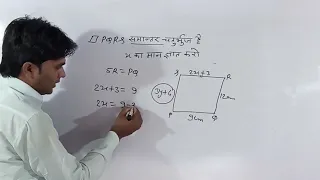 PQRS समान्तर चतुर्भुज है
x का मान ज्ञात करो
SR = PQ
2x+3 = 9
2x = 9-3
S 2x+3 R
3y+6
12cm
P 9cm Q